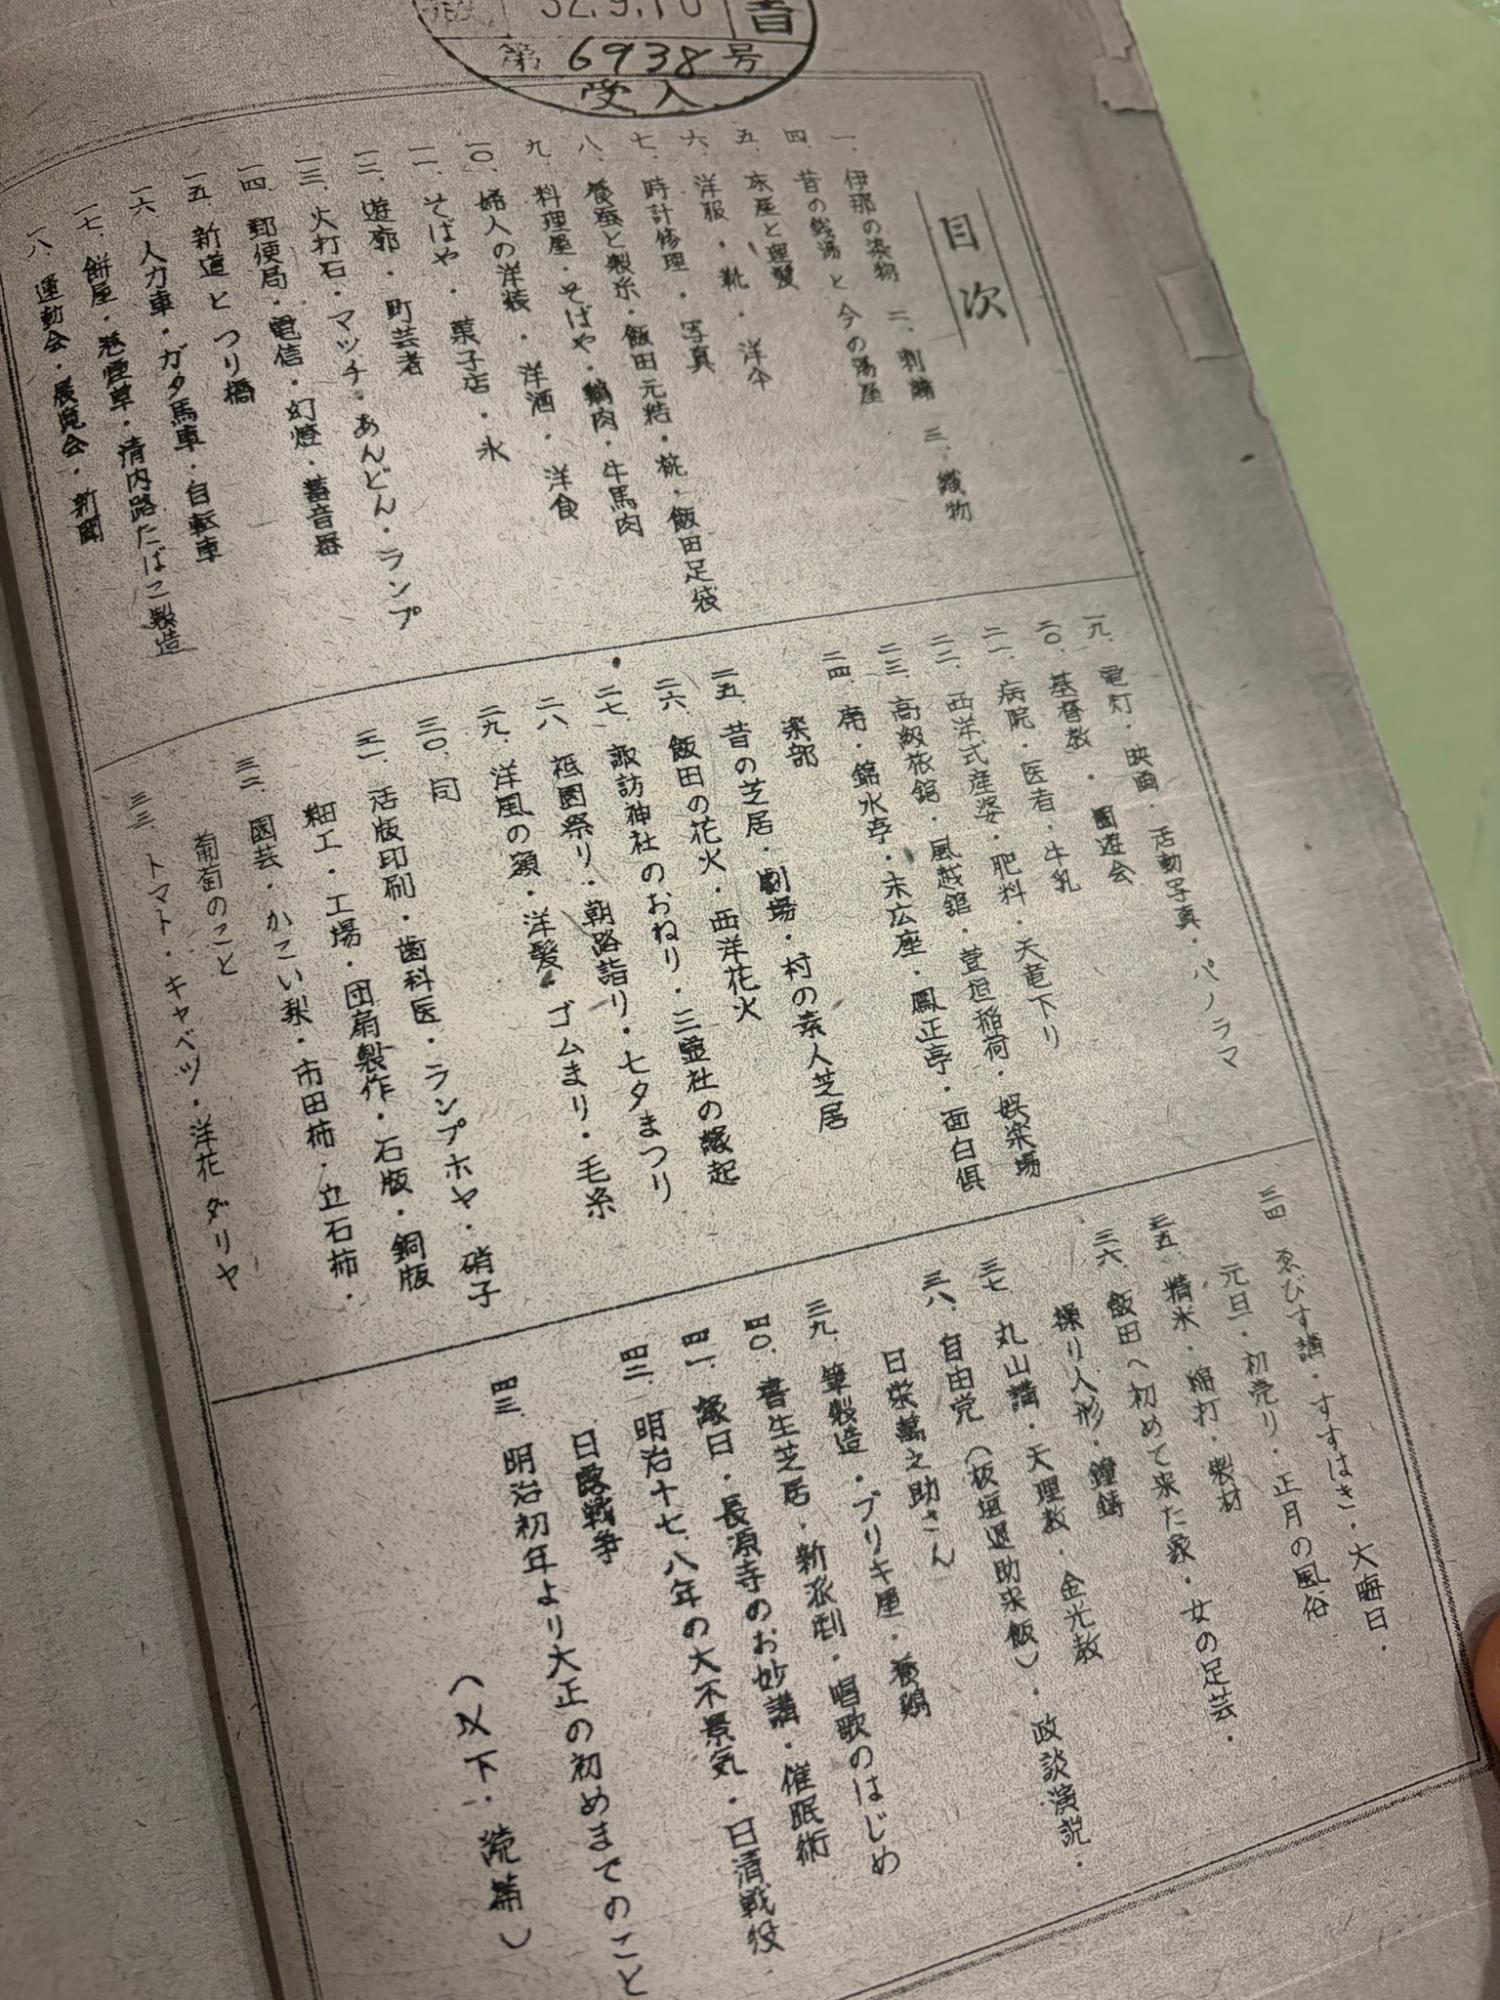 32.9.10
第6938号
受入
目次
一、伊那の染物 二、剃繍 三、織物
四、昔の銭湯と今の湯屋
五、床屋と理髪
六、洋服・靴・洋傘
七、時計修理・写真
八、養蚕と製糸・飯田元結・桃・飯田足袋
九、料理屋・そばや・鶏肉・牛馬肉
一〇、婦人の洋装・洋酒・洋食
一一、そばや・菓子店・氷
一二、遊廓・町芸者
一三、火打石・マッチ・あんどん・ランプ
一四、郵便局・電信・幻燈・蓄音器
一五、新道とつり橋
一六、人力車・ガタ馬車・自転車
一七、餅屋・巻煙草・清内路たばこ製造
一八、運動会・展覧会・新聞
一九、電灯・映画・活動写真・パノラマ
二〇、基督教・園遊会
二一、病院・医者・牛乳
二二、西洋式産婆・肥料・天竜下り
二三、高級旅館・風越館・萱垣稲荷・娯楽場
二四、庵・錦水亭・末広座・鳳正亭・面白倶
楽部
二五、昔の芝居・劇場・村の素人芝居
二六、飯田の花火・西洋花火
二七、諏訪神社のおねり・三霊社の縁起
二八、祇園祭り・朝路詣り・七夕まつり
二九、洋風の額・洋髪・ゴムまり・毛糸
三〇、同
三一、活版印刷・歯科医・ランプホヤ・硝子
細工・工場・団扇製作・石版・銅版
三二、園芸・かこい梨・市田柿・立石柿・
葡萄のこと
三三、トマト・キャベツ・洋花ダリヤ
三四 ゑびす講・すすはき・大晦日・
元旦・初売り・正月の風俗
三五、精米・綿打・製材
三六、飯田へ初めて来た象・女の足芸・
操り人形・鐘鋳
三七 丸山講・天理教・金光教
三八、自由党（板垣退助来飯）・政談演説・
日栄萬之助さん
三九、筆製造・ブリキ屋・養鶏
四〇、書生芝居・新派劇・唱歌のはじめ
四一、縁日・長源寺のお妙講・催眠術
四二、明治十七、八年の大不景気・日清戦役
日露戦争
四三、明治初年より大正の初めまでのこと
（以下、続篇）